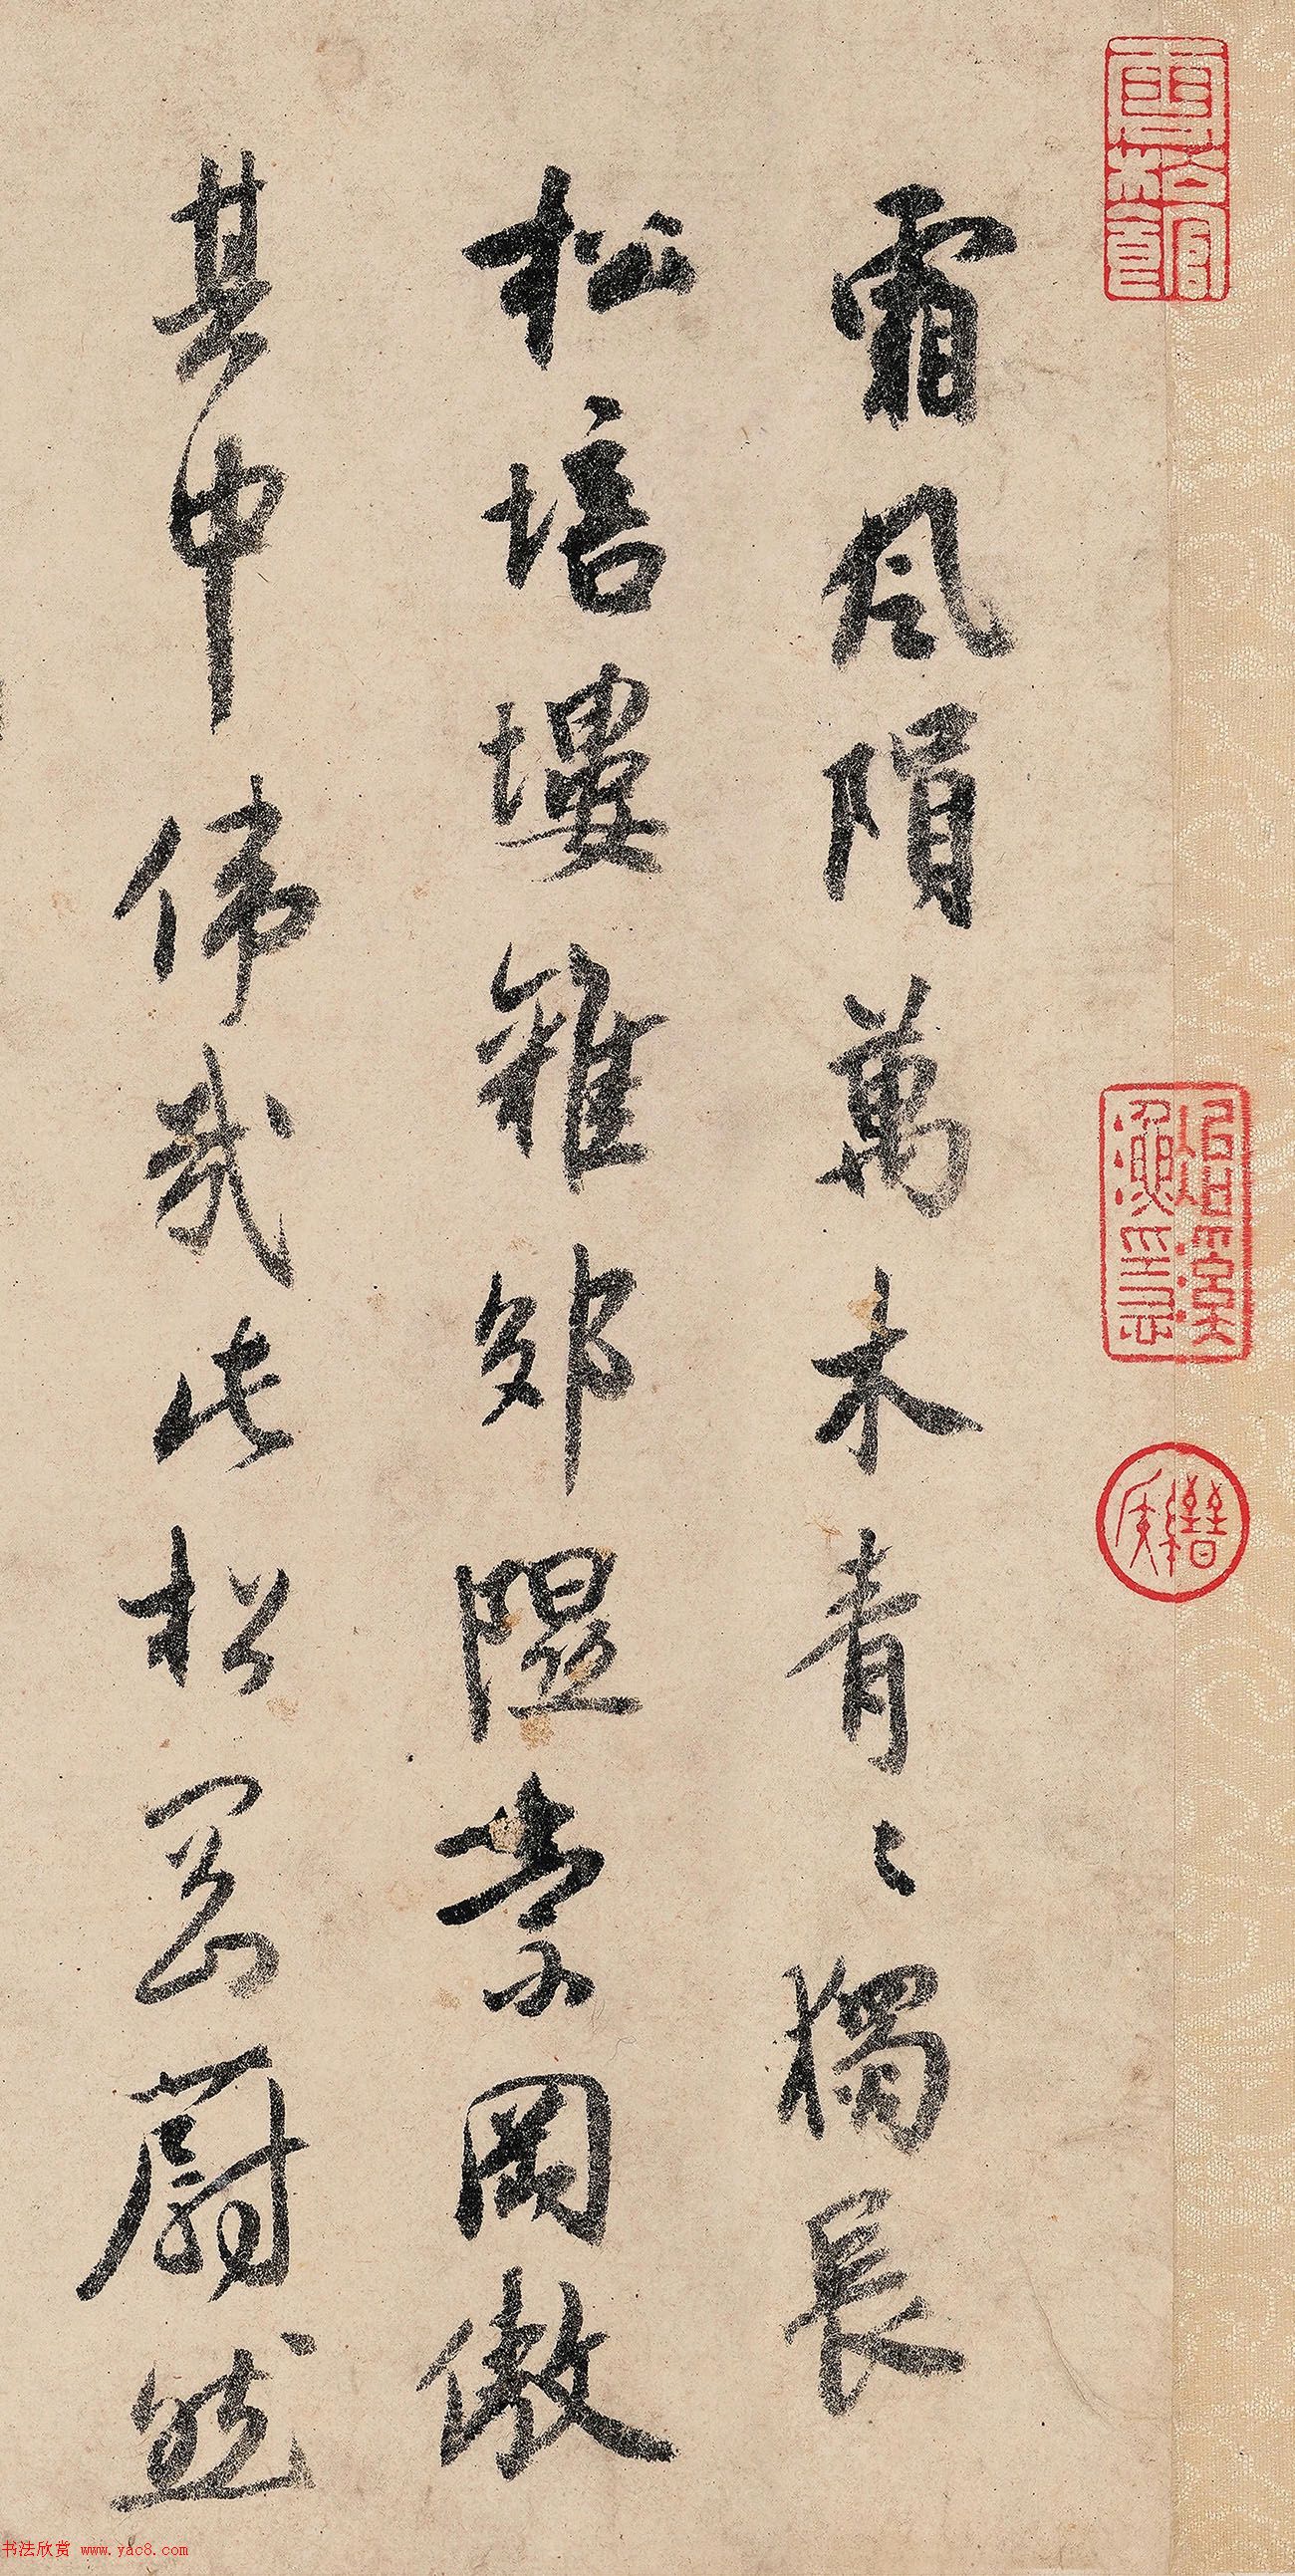 霜風隕萬木青〻獨長
松培塿雜郊隰崇岡傲
其中偉哉此松岡蔚然
书法欣赏 www.yac8.com